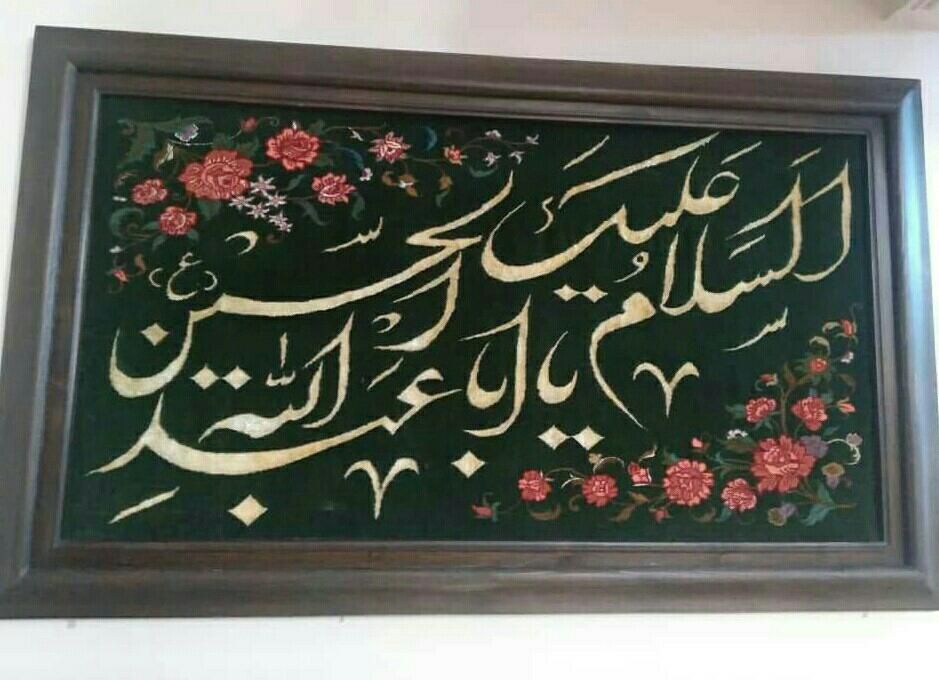 السَلامُ عَلیکَ
یا ابا عَبدِ الله الحسین (ع)